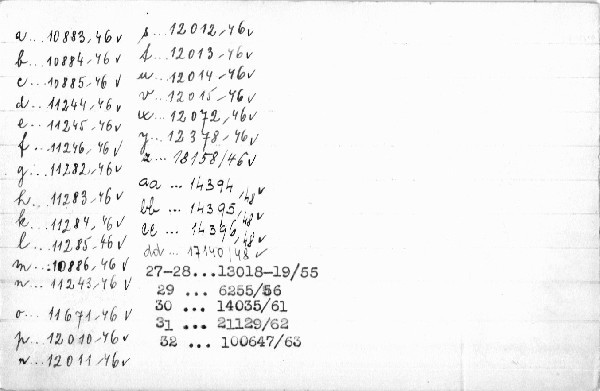 a...10883/46 v
b...10884/46 v
c...10885/46 v
d...11244/46 v
e...11245/46 v
f...11246/46 v
g...11282/46 v
h...11283/46 v
k...11284/46 v
l...11285/46 v
m...10886/46 v
n...11243/46 v
o...11671/46 v
p...12010/46 v
r...12011/46 v
s...12012/46 v
t...12013/46 v
u...12014/46 v
v...12015/46 v
x...12072/46 v
y...12378/46 v
z...13158/46 v
aa...14394/48 v
bb...14395/48 v
cc...14396/48 v
dd...17140/48 v
27-28...13018-19/55
29 ... 6255/56
30 ... 14035/61
31 ... 21129/62
32 ... 100647/63